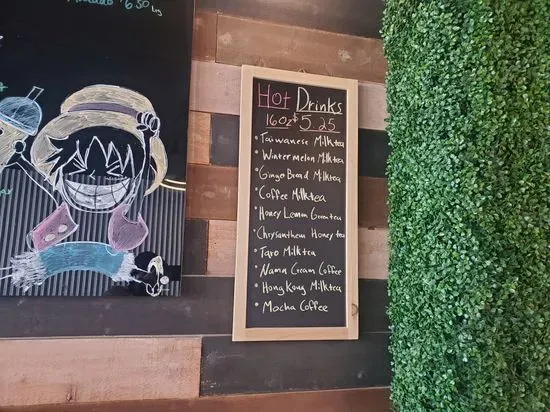 $6.50 Lrg
Hot Drinks
16oz $5.25
• Taiwanese Milktea
• Wintermelon Milktea
• Ginger Bread Milktea
• Coffee Milktea
• Honey Lemon Greentea
• Chrysanthem Honey tea
• Taro Milktea
• Nama Cream Coffee
• Hong Kong Milktea
• Mocha Coffee